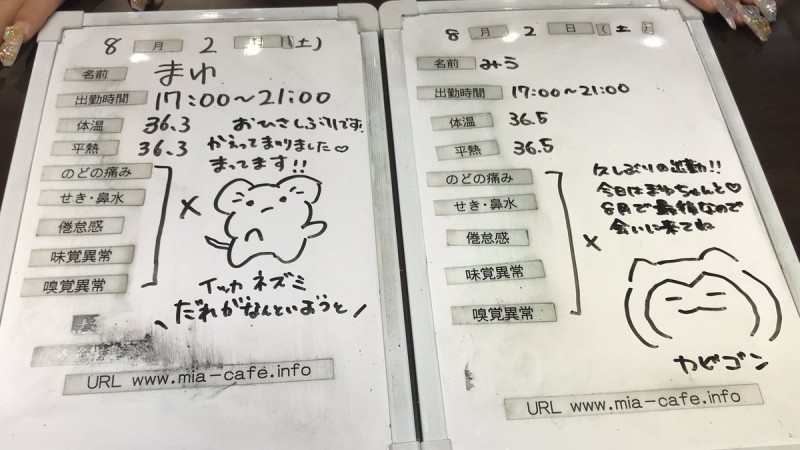 8 月 2 日 (土)
名前 まゆ
出勤時間 17:00〜21:00
体温 36.3
平熱 36.3
おひさしぶりです!
かえってまいりました♡
まってます!!
のどの痛み
せき・鼻水
倦怠感
味覚異常
嗅覚異常
×
イッカネズミ
\だれがなんといおうと/
URL www.mia-cafe.info
8 月 2 日 (土)
名前 みう
出勤時間 17:00〜21:00
体温 36.5
平熱 36.5
のどの痛み
せき・鼻水
倦怠感
味覚異常
嗅覚異常
×
久しぶりの出勤!!
今日はまゆちゃんと♡
8月で最後なので
会いに来てね
カビゴン
URL www.mia-cafe.info